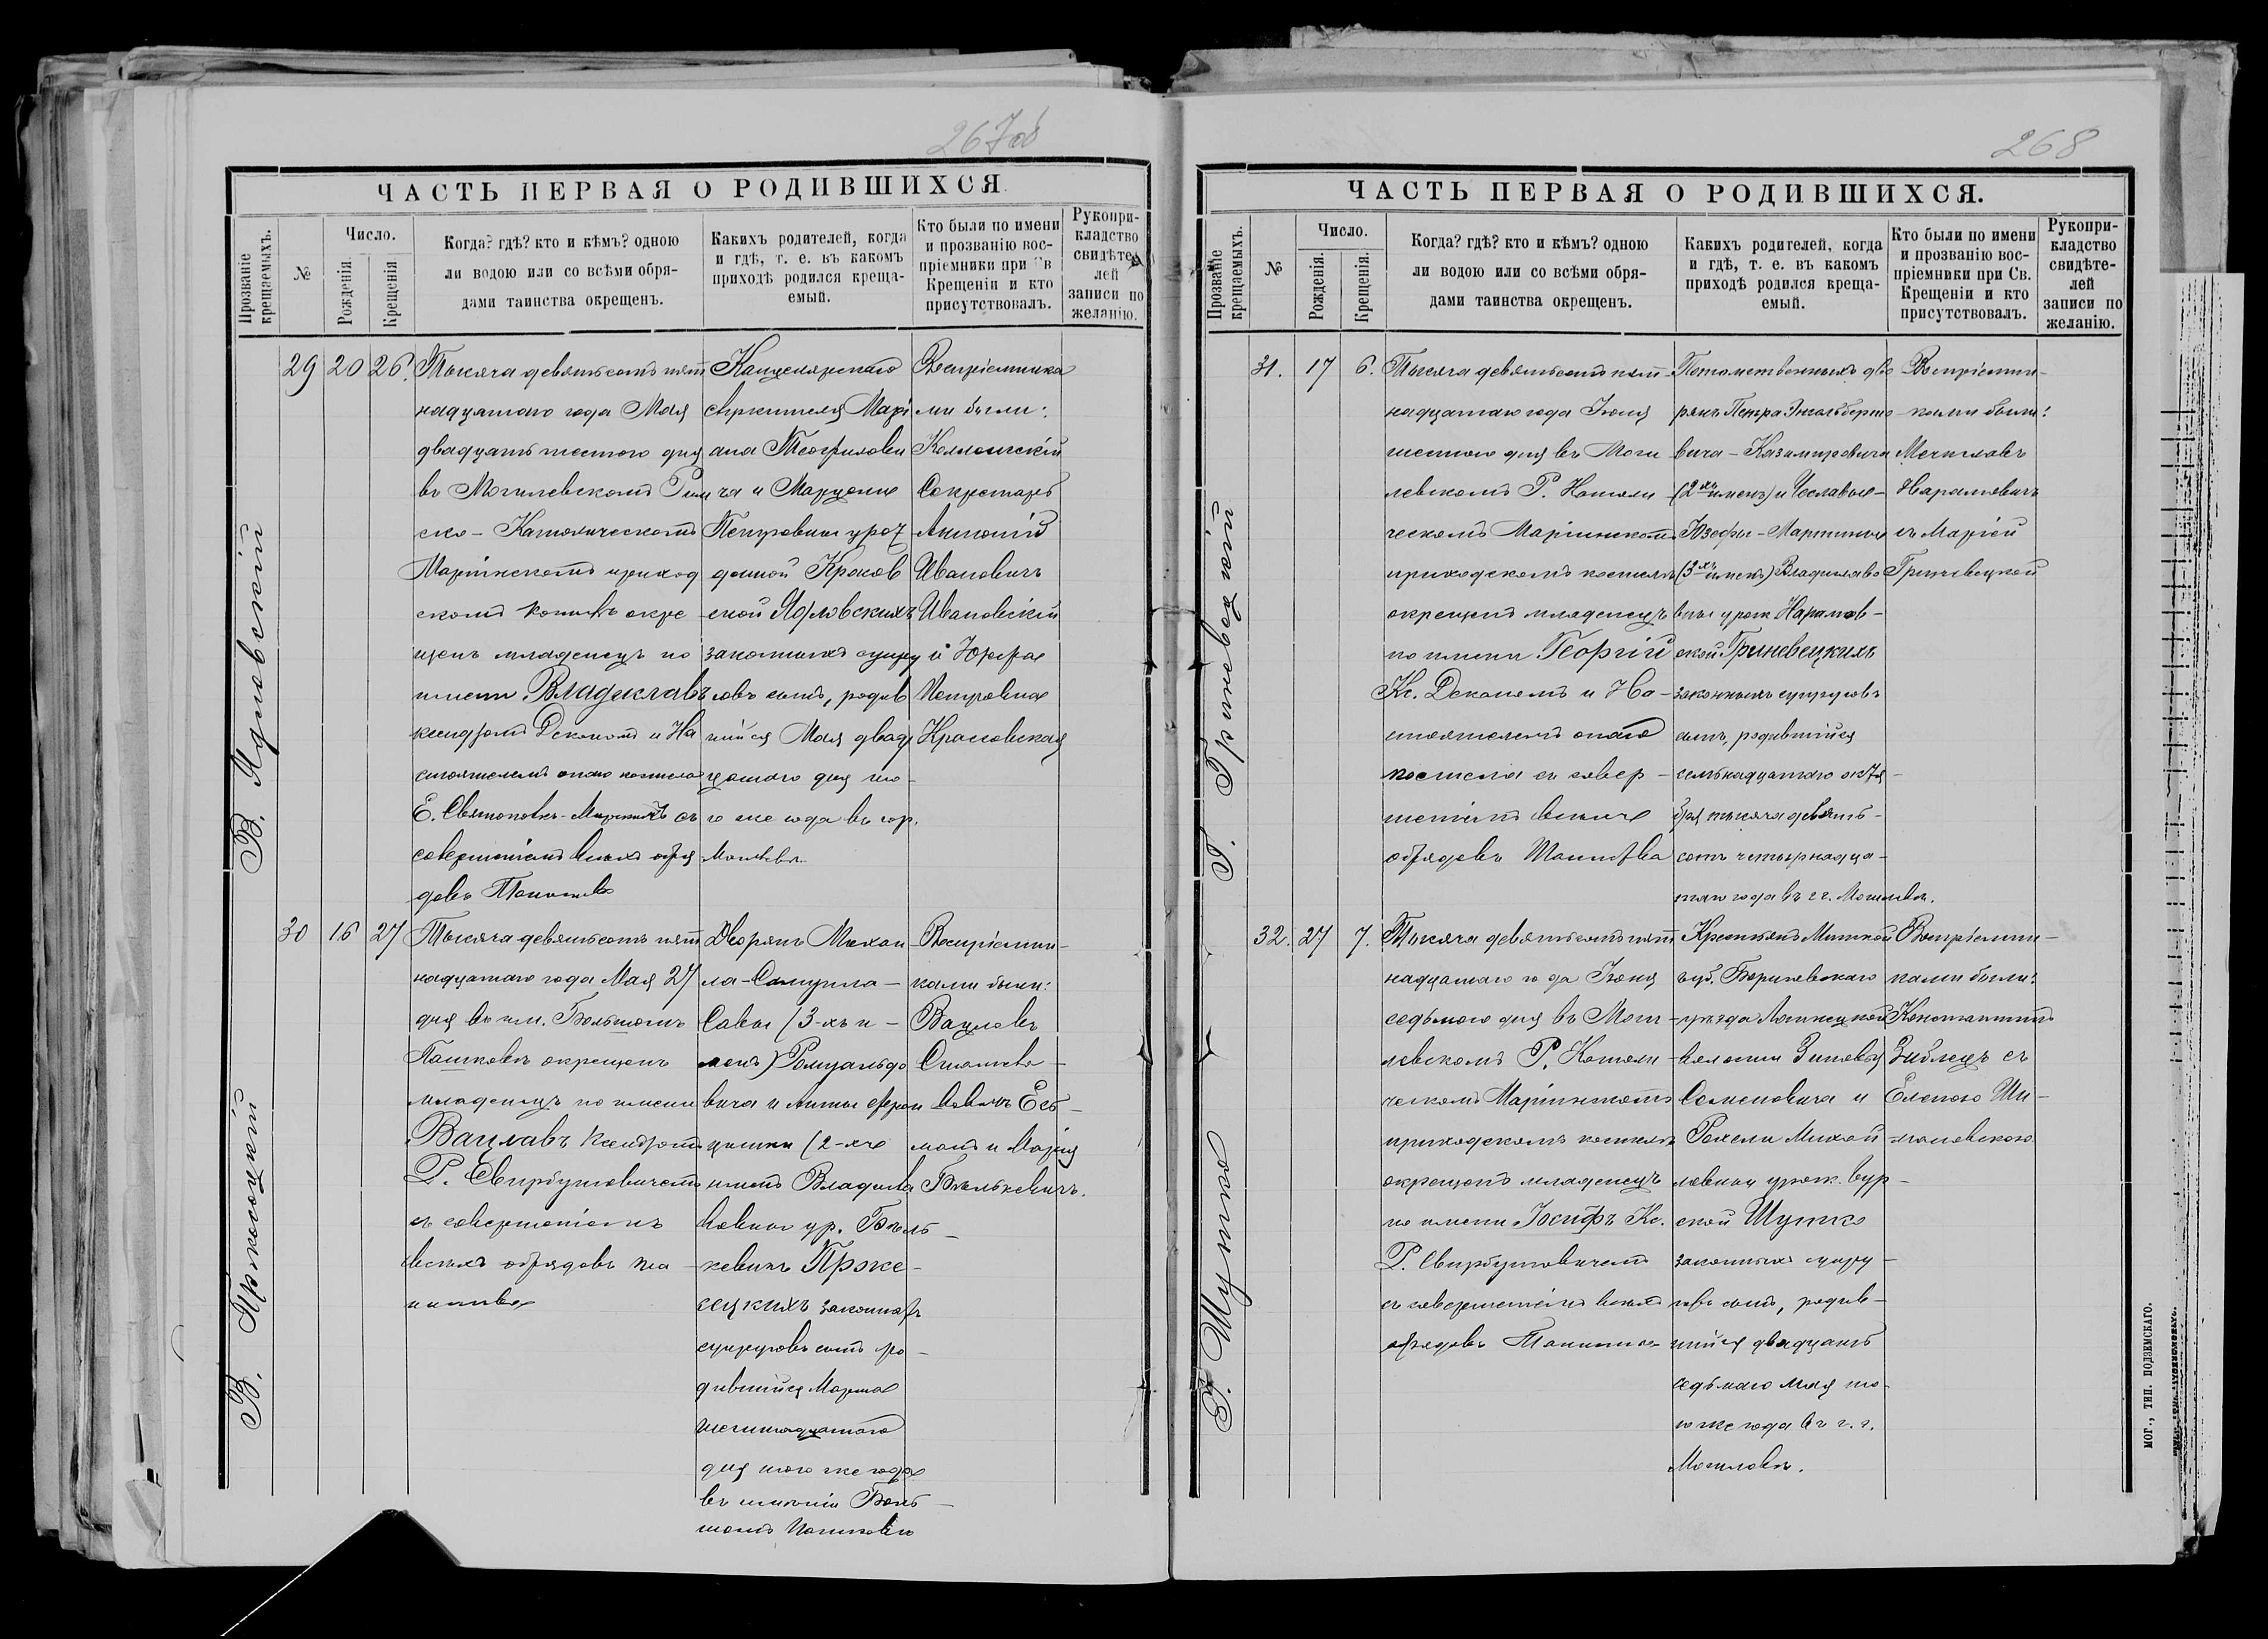 267об
ЧАСТЬ ПЕРВАЯ О РОДИВШИХСЯ.
Прозваніе крещаемыхъ.
№
Число.
Рожденія.
Крещенія
Когда? гдѣ? кто и кѣмъ? одною
ли водою или со всѣми обря-
дами таинства окрещенъ.
Какихъ родителей, когда
и гдѣ, т. е. въ какомъ
приходѣ родился креща-
емый.
Кто были по имени
и прозванію вос-
пріемники при в
Крещеніи и кто
присутствовалъ.
Рукопри-
кладство
свидѣте
лей
записи по
желанію.
В. Ядловскій
29
20
26.
Тысяча девятьсотъ пят
надцатаго года Мая
двадцать шестого дня
въ Могилевскомъ Рим
ско-Католическомъ
Маріинскомъ приход
скомъ костелѣ окре
щенъ младенецъ по
имени Владиславъ
ксендзомъ Деканомъ и На
стоятелемъ онаго костела
Е. Святополкъ-Мирскимъ съ
совершеніемъ всѣхъ обря
довъ Таинства
Канцелярскаго
служителя Марі
ана Теофилови
ча и Марцелии
Петровны урож
денной Краков
ской Ядловскихъ
законныхъ супру
говъ сынъ, родив
шійся Мая двад
цатаго дня то-
го же года въ гор.
Могилевѣ.
Воспріемника
ми были:
Коллежскій
Секретарь
Антоній
Ивановичъ
Ивановскій
и Юзефа
Петровна
Краковская
В. Пржесецкій
30
16
27
Тысяча девятьсотъ пят
надцатаго года Мая 27
дня въ им. Большомъ
Пашковѣ окрещенъ
младенецъ по имени
Вацлавъ Ксендзомъ
Р. Свирбутовичемъ
съ совершеніемъ
всѣхъ обрядовъ та-
инства
Дворянъ Михаи
ла-Самуила-
Савы (3-хъ и-
менъ) Ромуальдо
вича и Анны Фран
цишки (2-хъ
именъ Владисла
вовны ур. Бѣль-
кевичъ Прже-
сецкихъ законныхъ
супруговъ сынъ ро-
дившійся Марта
шестнадцатаго
дня того же года
въ имѣніи Боль-
шомъ Пашковѣ
Воспріемни-
ками были:
Вацлавъ
Станисла-
вовичъ Есь-
манъ и Марія
Бѣлькевичъ.
268
ЧАСТЬ ПЕРВАЯ О РОДИВШИХСЯ.
Прозваніе крещаемыхъ.
№
Число.
Рожденія.
Крещенія.
Когда? гдѣ? кто и кѣмъ? одною
ли водою или со всѣми обря-
дами таинства окрещенъ.
Какихъ родителей, когда
и гдѣ, т. е. въ какомъ
приходѣ родился креща-
емый.
Кто были по имени
и прозванію вос-
пріемники при Св.
Крещеніи и кто
присутствовалъ.
Рукопри-
кладство
свидѣте-
лей
записи по
желанію.
Г. Гриневецкій
31.
17
6.
Тысяча девятьсотъ пят-
надцатаго года Іюня
шестого дня въ Моги
левскомъ Р. Католи-
ческомъ Маріинскомъ
приходскомъ костелѣ
окрещенъ младенецъ
по имени Георгій
Кс. Деканомъ и На-
стоятелемъ онаго
костела съ совер-
шеніемъ всѣхъ
обрядовъ Таинства
Потомственныхъ дво
рянъ Петра Энгельберто
вича-Казимировича
(2хъ именъ) и Чеславы-
Юзефы-Мартины
(3хъ именъ) Владиславо
вны урож Нарамов-
ской Гриневецкихъ
законныхъ супруговъ
сынъ, родившійся
семьнадцатаго октя-
бря тысяча девять-
сотъ четырнадца-
таго года въ г. г. Могилевѣ.
Воспріемни-
ками были:
Мечиславъ
Нарамовичъ
съ Маріей
Гриневецкой
I. Шутко
32.
27
7.
Тысяча девятьсотъ пят
надцатаго года Іюня
седьмого дня въ Моги-
левскомъ Р. Католи-
ческомъ Маріинскомъ
приходскомъ костелѣ
окрещенъ младенецъ
по имени Іосифъ Кс.
Р. Свирбутовичемъ
съ совершеніемъ всѣхъ
обрядовъ Таинства
Крестьянъ Минской
губ. Борисовскаго
уѣзда
волости Зиновья
Семеновича и
Рахели Михай
ловны урож.
ской Шутко
законныхъ супру-
говъ сынъ, родив-
шійся двадцать
седьмаго мая то-
го же года въ г. г.
Могилевѣ.
Воспріемни-
ками были:
Константинъ
съ
Еленою Ши-
мановскою
МОГ., ТИП. ПОДЗЕМСКАГО.